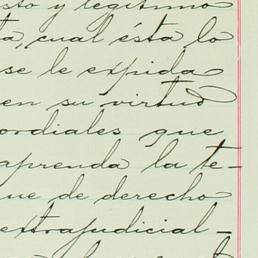 sto y legítimo
ta, cual ésta lo
se le expida
en su virtud
ordiales que
aprenda la te-
ue de derecho
extrajudicial-